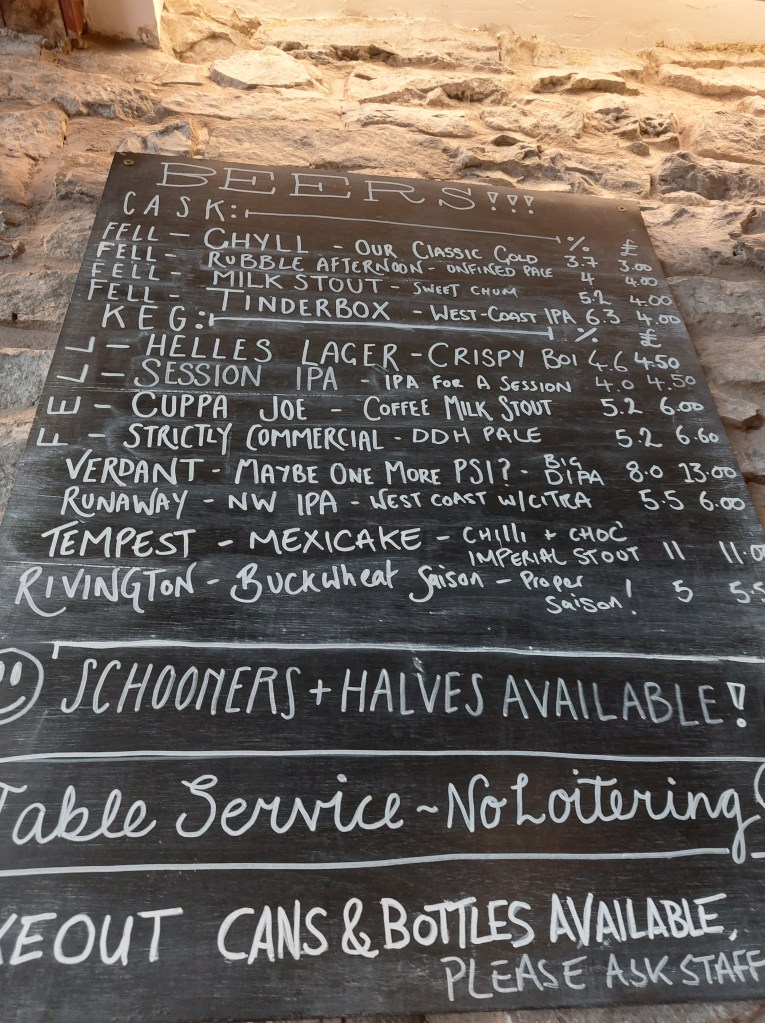 BEERS!!!
CASK: % £
FELL - GHYLL - OUR CLASSIC GOLD 3.7 3.00
FELL - RUBBLE AFTERNOON - UNFINED PALE 4 4.00
FELL - MILK STOUT - SWEET CHUM 5.2 4.00
FELL - TINDERBOX - WEST-COAST IPA 6.3 4.00
KEG: % £
FELL - HELLES LAGER - CRISPY BOI 4.6 4.50
- SESSION IPA - IPA FOR A SESSION 4.0 4.50
- CUPPA JOE - COFFEE MILK STOUT 5.2 6.00
- STRICTLY COMMERCIAL - DDH PALE 5.2 6.60
VERDANT - MAYBE ONE MORE PSI? - BIG DIPA 8.0 13.00
RUNAWAY - NW IPA - WEST COAST W/CITRA 5.5 6.00
TEMPEST - MEXICAKE - CHILLI + CHOC IMPERIAL STOUT 11 11.0
RIVINGTON - BUCKWHEAT SAISON - PROPER SAISON! 5 5.5
SCHOONERS + HALVES AVAILABLE!
Table Service ~ No Loitering
KEOUT CANS & BOTTLES AVAILABLE,
PLEASE ASK STAFF